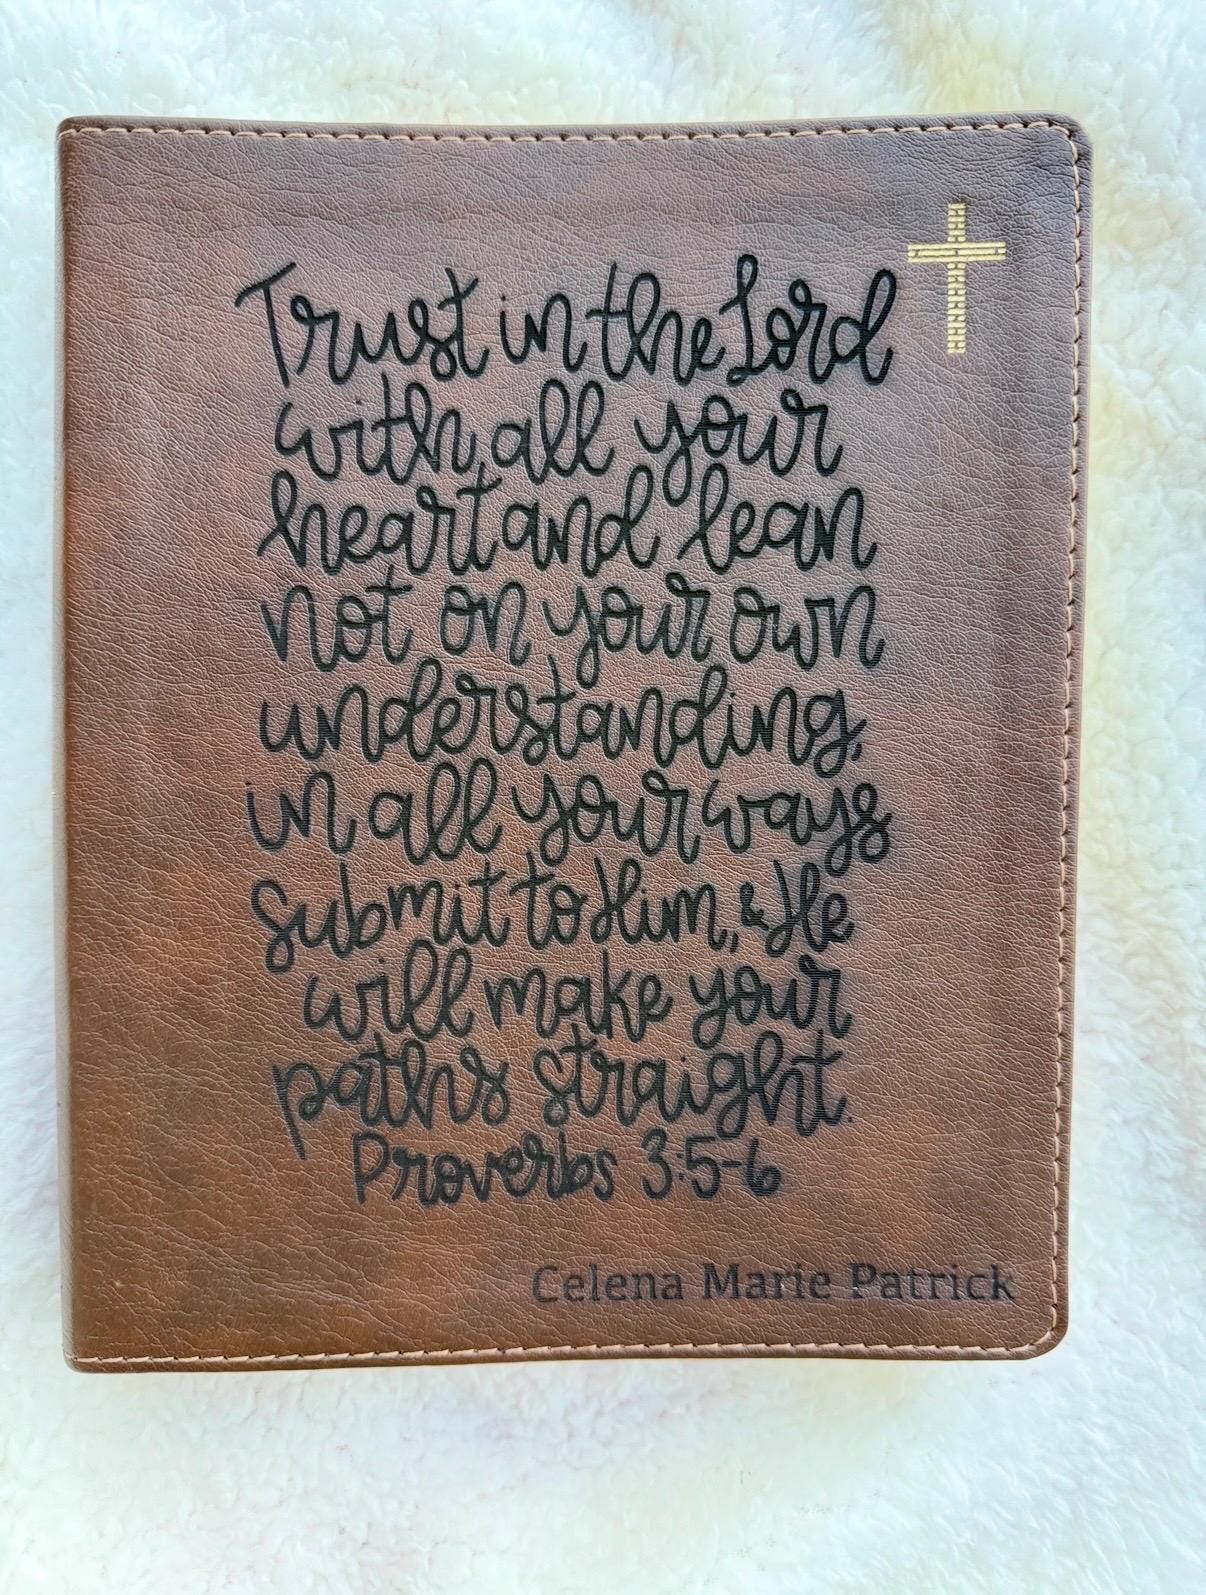 Trust in the Lord
with all your
heart and lean
not on your own
understanding,
in all your ways
Submit to Him, & He
will make your
paths straight.
Proverbs 3:5-6
Celena Marie Patrick